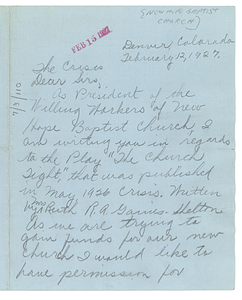 (NEW HOPE BAPTIST
CHURCH)
FEB 15 1927
Denver, Colorado
February 12, 1927.
The Crisis
Dear Sirs,
As President of the
Willing Workers of New
Hope Baptist Church, I
am writing you in regards
to the Play, "The Church
Fight" that was published
in May, 1926 Crisis. Written
by Ruth R.A. Gaines-Shelton
As we are trying to
gain funds for our new
church I would like to
have permission for